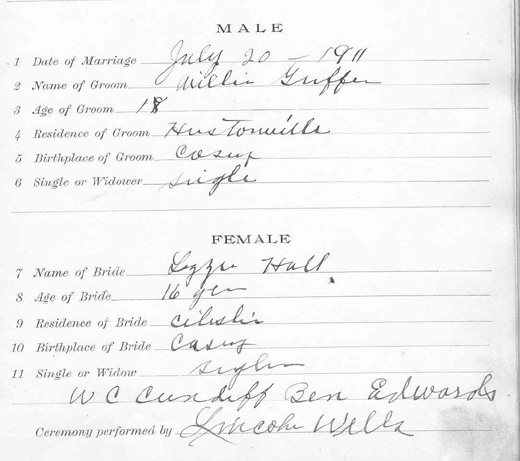 MALE
1 Date of Marriage July 20 - 1911
2 Name of Groom Willie Griffen
3 Age of Groom 18
4 Residence of Groom Hustonville
5 Birthplace of Groom Casey
6 Single or Widower single
FEMALE
7 Name of Bride Lizzie Hall
8 Age of Bride 16 yrs
9 Residence of Bride
10 Birthplace of Bride Casey
11 Single or Widow single
W C Cundiff Ben Edwards
Ceremony performed by Lincoln Wells